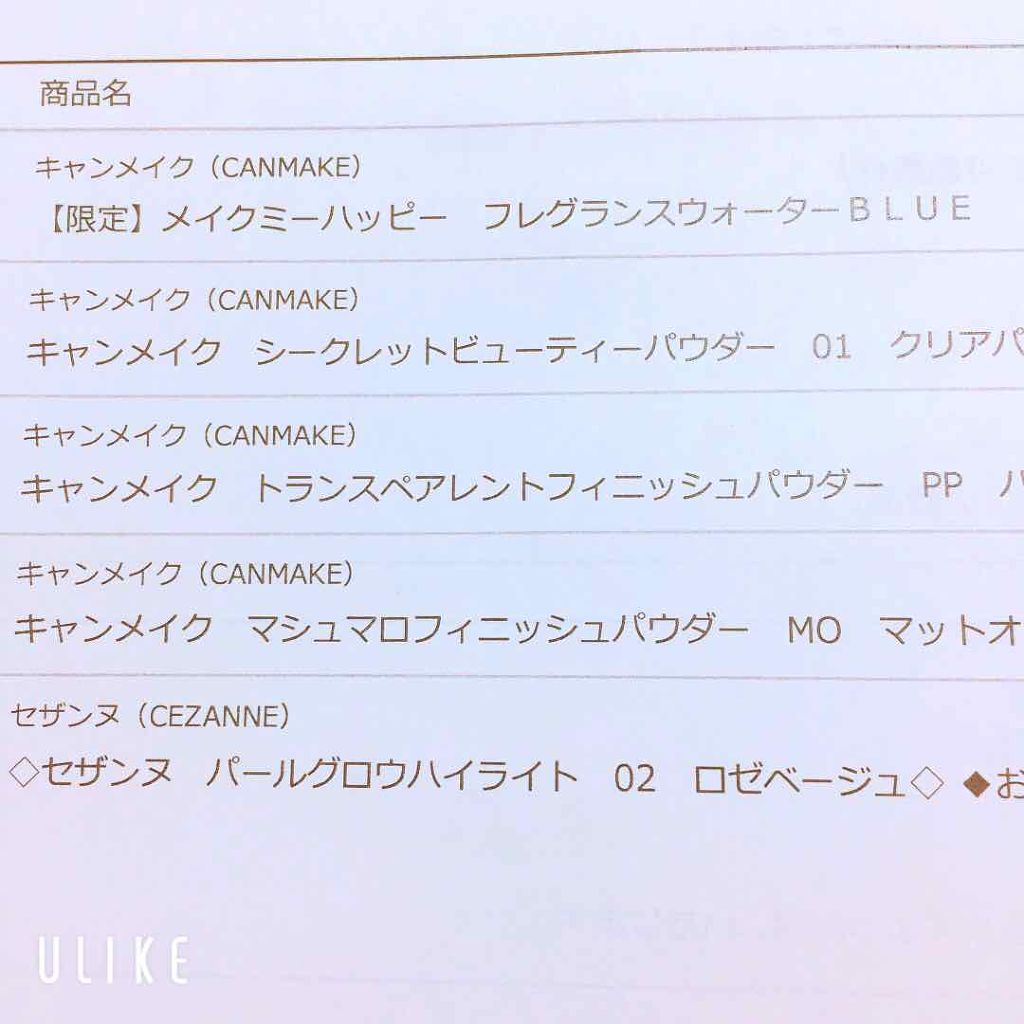 商品名
キャンメイク（CANMAKE）
【限定】メイクミーハッピー　フレグランスウォーターＢＬＵＥ
キャンメイク（CANMAKE）
キャンメイク　シークレットビューティーパウダー　01　クリアパ
キャンメイク（CANMAKE）
キャンメイク　トランスペアレントフィニッシュパウダー　PP　パ
キャンメイク（CANMAKE）
キャンメイク　マシュマロフィニッシュパウダー　MO　マットオ
セザンヌ（CEZANNE）
◇セザンヌ　パールグロウハイライト　02　ロゼベージュ◇ ◆お
ULIKE